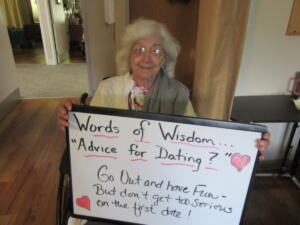 Words of Wisdom...
"Advice for Dating?"
Go Out and have Fun -
But don't get too serious
on the first date!